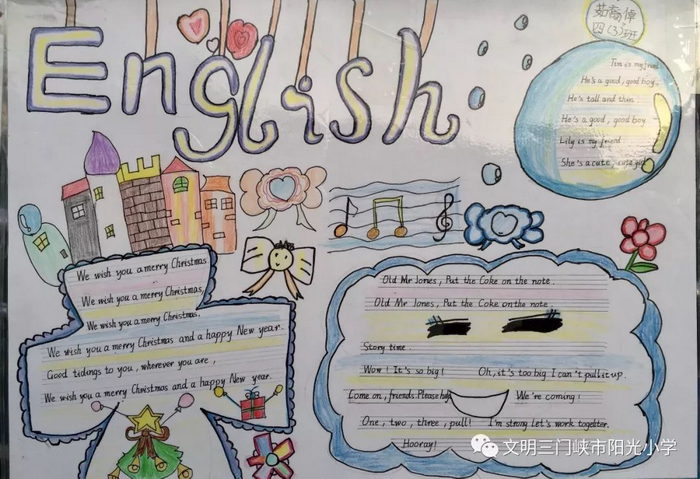 English
四(3)班
Tim is my friend
He's a good, good boy.
He's tall and thin
He's a good, good boy.
Lily is my friend
She's a cute, cute girl
We wish you a merry Christmas
We wish you a merry Christmas,
We wish you a merry Christmas,
We wish you a merry Christmas and a happy New year.
Good tidings to you, wherever you are,
We wish you a merry Christmas and a happy New year.
Old Mr Jones, Put the Coke on the note.
Old Mr Jones, Put the Coke on the note.
Story time.
Wow! It's so big! Oh, it's too big I can't pull it up.
Come on, friends. Please help We're coming!
One, two, three, pull! I'm strong Let's work togeliter.
Hooray!
文明三门峡市阳光小学